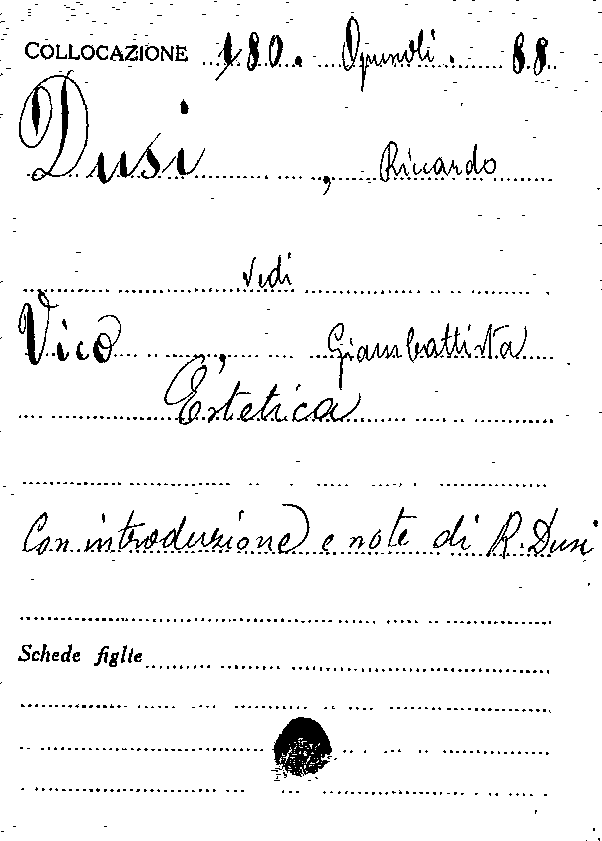 COLLOCAZIONE 180. Opuscoli. 88
Dusi, Riccardo
vedi
Vico, Giambattista
Estetica
Con introduzione e note di R. Dusi
Schede figlie